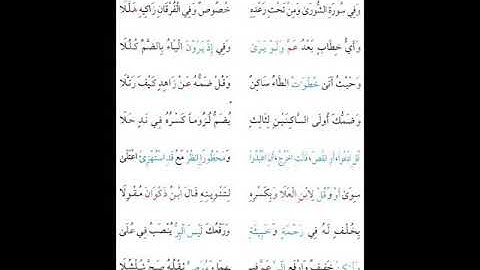 وَفِي سُورَةِ الشُّورَى وَمِنْ تَحْتِ رَعْدِهِ خُصُوصٌ وَفِي الْفُرْقَانِ زَاكِيهِ هَلَّلَا
وَأَيُّ خِطَابٍ بَعْدُ عَمَّ وَلَوْ يَرَى وَفِي إِذْ يَرَوْنَ الْيَاءُ بِالضَّمِّ كُلِّلَا
وَحَيْثُ أَتَى خُطْوَاتٌ الطَّاءُ سَاكِنٌ وَقُلْ ضَمُّهُ عَنْ زَاهِدٍ كَيْفَ رَتَّلَا
وَضَمُّكَ أُولَى السَّاكِنَيْنِ لِثَالِثٍ يُضَمُّ لُزُوماً كَسْرُهُ فِي نَدٍ حَلَا
قُلِ ادْعُوا أَوِ انْقُصْ قَالَتِ اخْرُجْ أَنِ اعْبُدُوا وَمَحْظُورًا انْظُرْ مَعْ قَدِ اسْتُهْزِئَ اعْتَلَى
سِوَى أَوْ وَقُلْ لِابْنِ الْعَلَا وَبِكَسْرِهِ لِتَنْوِينِهِ قَالَ ابْنُ ذَكْوَانَ مُقْوِلَا
بِخُلْفٍ لَهُ فِي رَحْمَةٍ وَخَبِيثَةٍ وَرَفْعُكَ لَيْسَ الْبِرُّ يُنْصَبُ فِي عُلَا
وَلَكِنْ خَفِيفٌ وَارْفَعِ الْبِرَّ عَمَّ فِيـ ـهِمَا وَمُوَصٍّ ثِقْلُهُ صَحَّ شُلْشُلَا